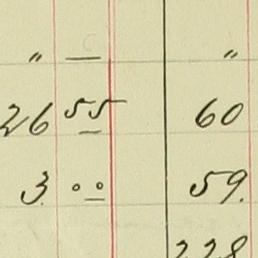 " — "
26 55 60
3 00 59.
228